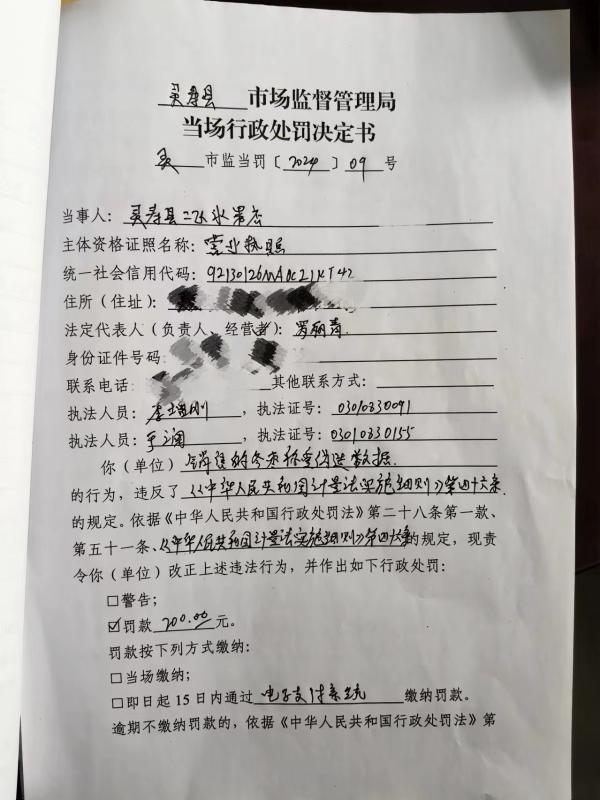 灵寿县 市场监督管理局
当场行政处罚决定书
灵 市监当罚〔2024〕09 号
当事人：灵寿县二飞水果店
主体资格证照名称：营业执照
统一社会信用代码：92130126MA0C21KT42
住所（住址）：
法定代表人（负责人、经营者）：罗丽青
身份证件号码
联系电话： 其他联系方式：
执法人员：李增刚，执法证号：03010330091
执法人员：于澜，执法证号：03010330155
你（单位）销售的冬枣称重伪造数据
的行为，违反了《中华人民共和国计量法实施细则》第四十六条
的规定。依据《中华人民共和国行政处罚法》第二十八条第一款、
第五十一条、《中华人民共和国计量法实施细则》第四十六条的规定，现责
令你（单位）改正上述违法行为，并作出如下行政处罚：
□警告；
☑罚款 200.00 元。
罚款按下列方式缴纳：
□当场缴纳；
□即日起 15 日内通过 电子支付系统 缴纳罚款。
逾期不缴纳罚款的，依据《中华人民共和国行政处罚法》第